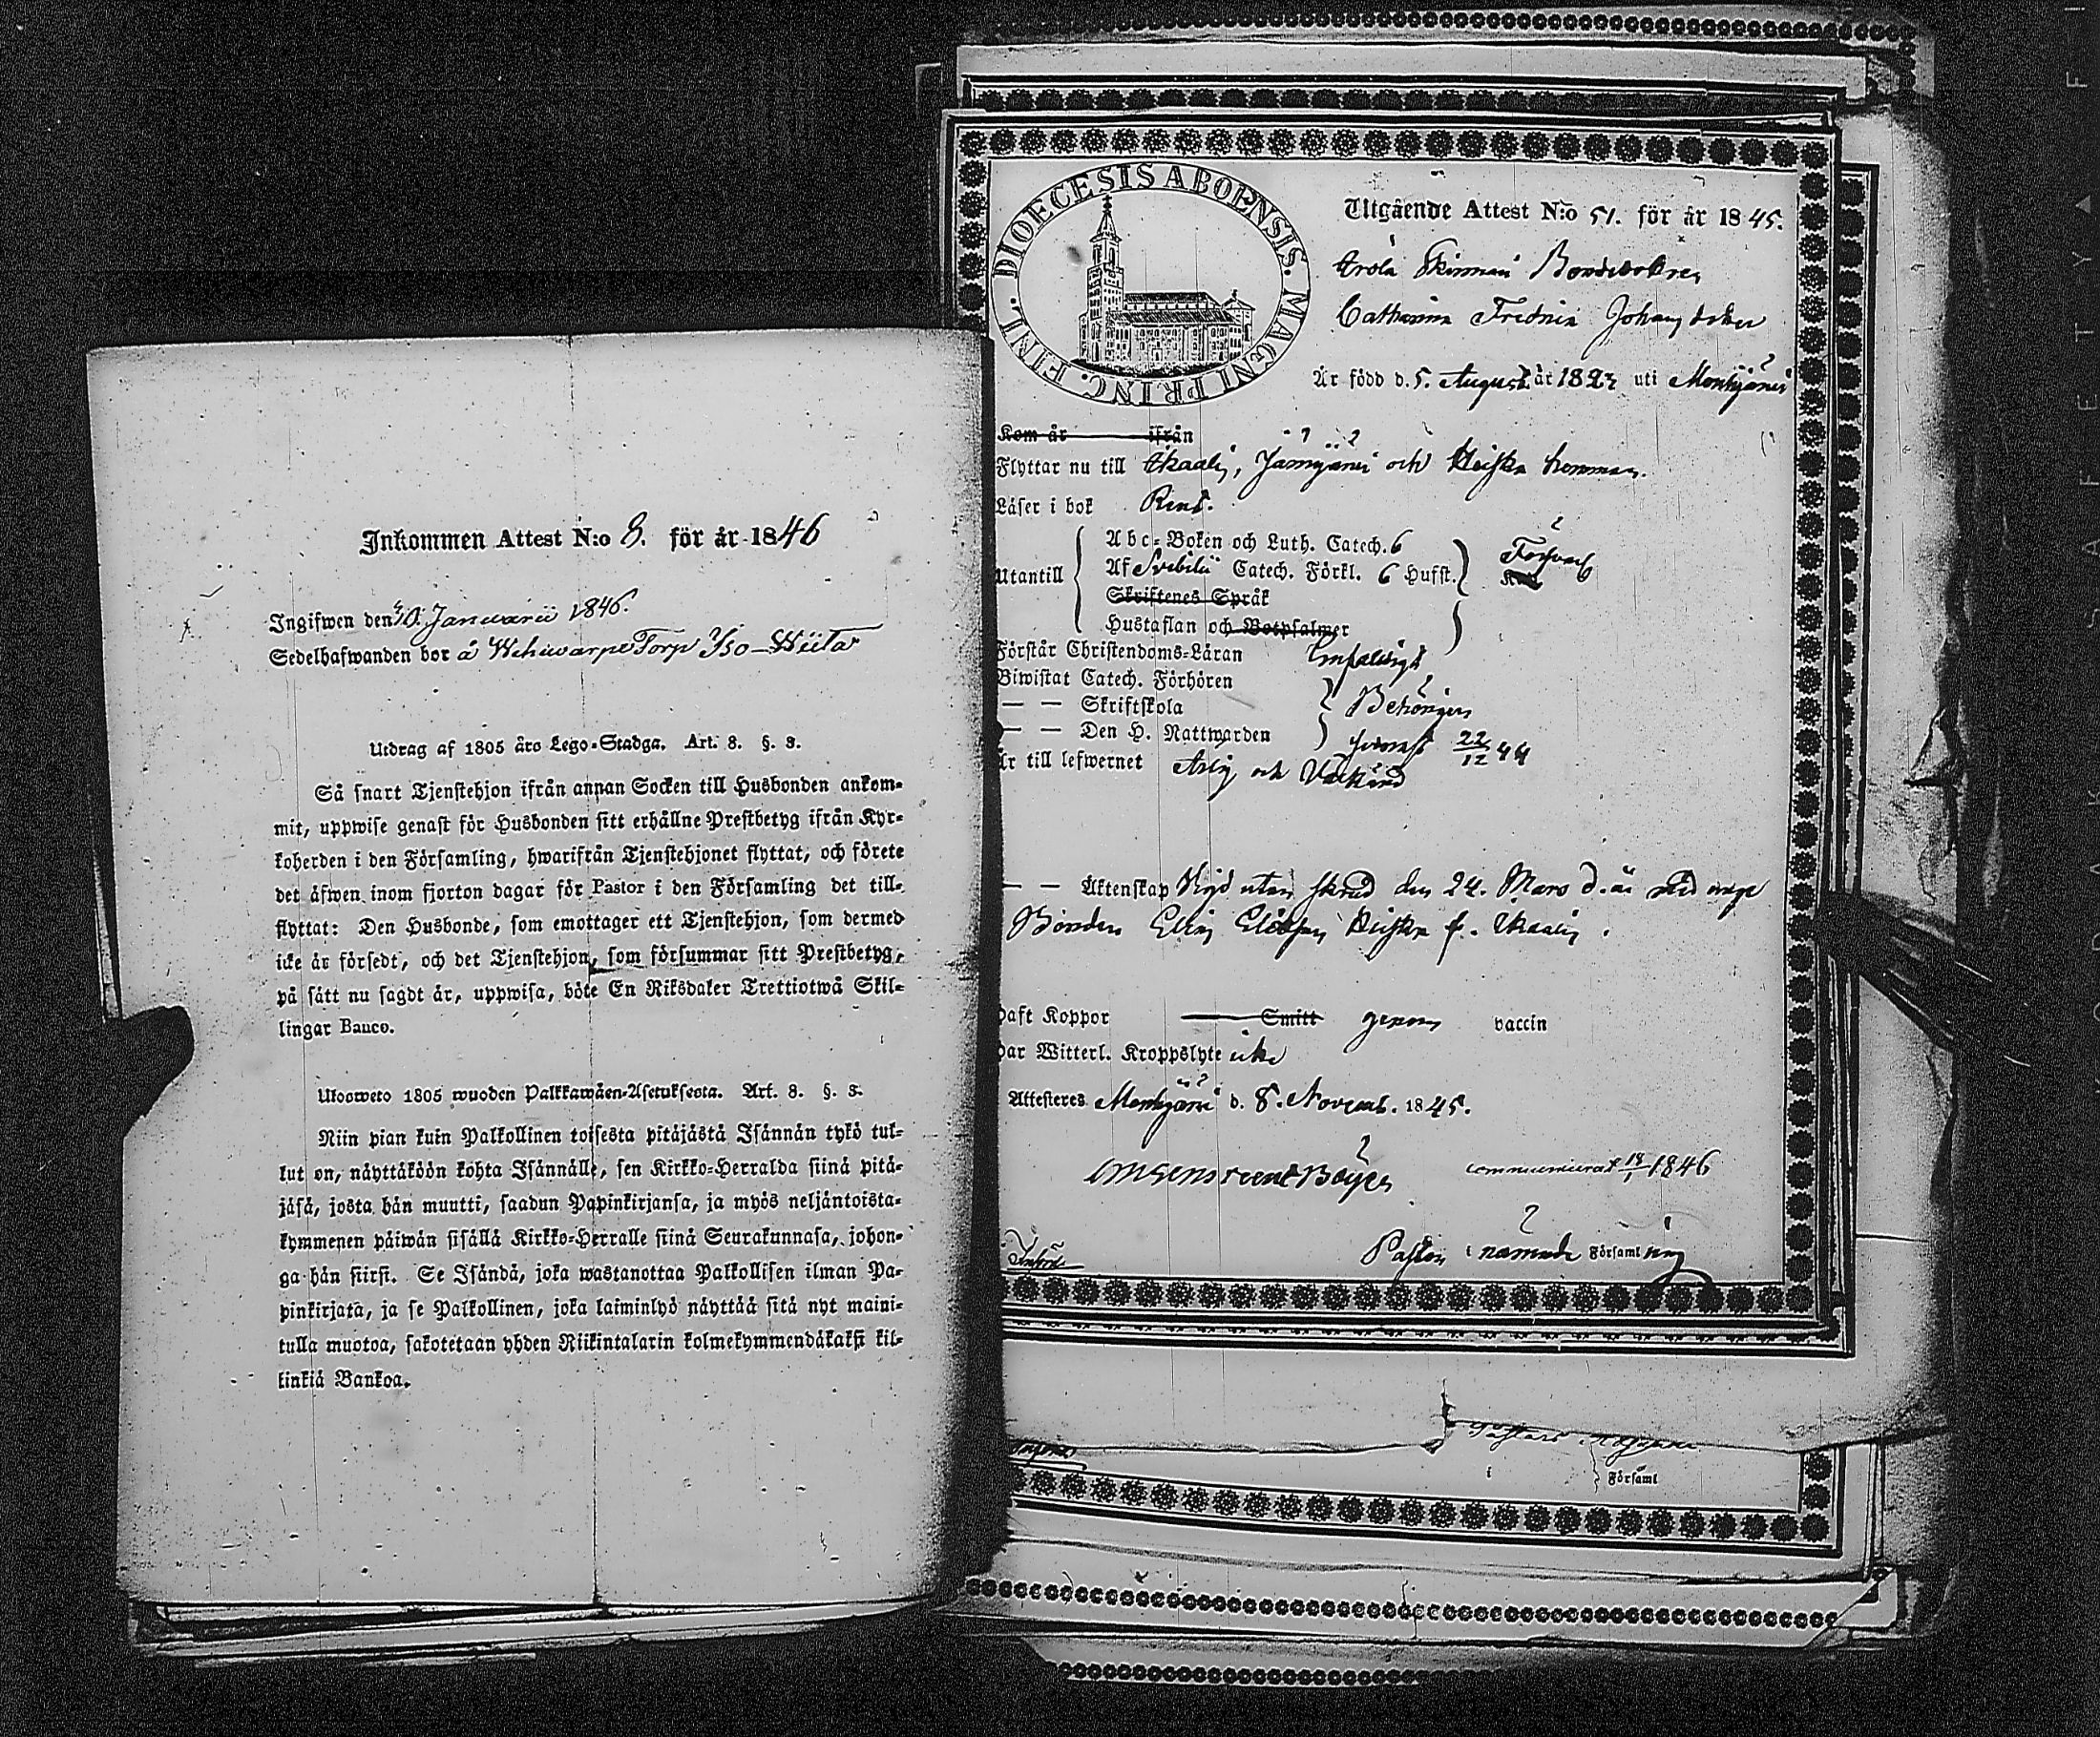 Inkommen Attest N:o 8. för år 1846
Ingifwen den 10 Januarii 1846.
Sedelhafwanden bor å Torp Iso-
Utdrag af 1805 års Lego-Stadga. Art. 8. §. 3.
Så snart Tjenstehjon ifrån annan Socken till Husbonden ankom-
mit, uppwise genast för Husbonden sitt erhållne Prestbetyg ifrån Kyr-
koherden i den Församling, hwarifrån Tjenstehjonet flyttat, och förete
det äfwen inom fjorton dagar för Pastor i den Församling det till-
flyttat: Den Husbonde, som emottager ett Tjenstehjon, som dermed
icke är försedt, och det Tjenstehjon, som försummar sitt Prestbetyg,
på sätt nu sagdt är, uppwisa, böte En Riksdaler Trettiotwå Skil-
lingar Banco.
Ulosweto 1805 wuoden Palkkawäen-Asetuksesta. Art. 8. §. 3.
Niin pian kuin Palkollinen toisesta pitäjästä Isännän tykö tul-
lut on, näyttäköön kohta Isännälle, sen Kirkko-Herralda siinä pitä-
jäsä, josta hän muutti, saadun Papinkirjansa, ja myös neljäntoista-
kymmenen päiwän sisällä Kirkko-Herralle siinä Seurakunnasa, johon-
ga hän siirsi. Se Isändä, joka wastanottaa Palkollisen ilman Pa-
pinkirjata, ja se Palkollinen, joka laiminlyö näyttää sitä nyt maini-
tulla muotoa, sakotetaan yhden Riikintalarin kolmekymmendäkaksi kil-
linkiä Bankoa.
DIOECESIS ABOENSIS. MAGNI PRINC. FINL.
Utgående Attest N:o 51. för år 1845.
Bondedotren
Catharina Johansdotter
Är född d. 5. August år 182 uti Mouhijärvi
Kom år ifrån
Flyttar nu till Ikaalis, och hemman.
Läser i bok Rent.
Utantill
Abc-Boken och Luth. Catech. 6
Af Svebilii Catech. Förkl. 6 Hufst.
Försvarl
Skriftenes Språk
Hustaflan och Botpsalmer
Förstår Christendoms-Läran Enfaldigt
Biwistat Catech. Förhören
— — Skriftskola Behörigen
— — Den H. Nattwarden 22/12 44
Är till lefwernet Ärlig och Välkänd
— — Äktenskap Vigd utan den 24. Mars d. år med unge
Bonden Elias Ikaalis.
Haft Koppor Smitt genom vaccin
Har Witterl. Kroppslyte icke
Attesteras Mouhijärvi d. 8. Novemb. 1845.
communicerat 18/1 1846
Pastor i nämnde Församling
Församl